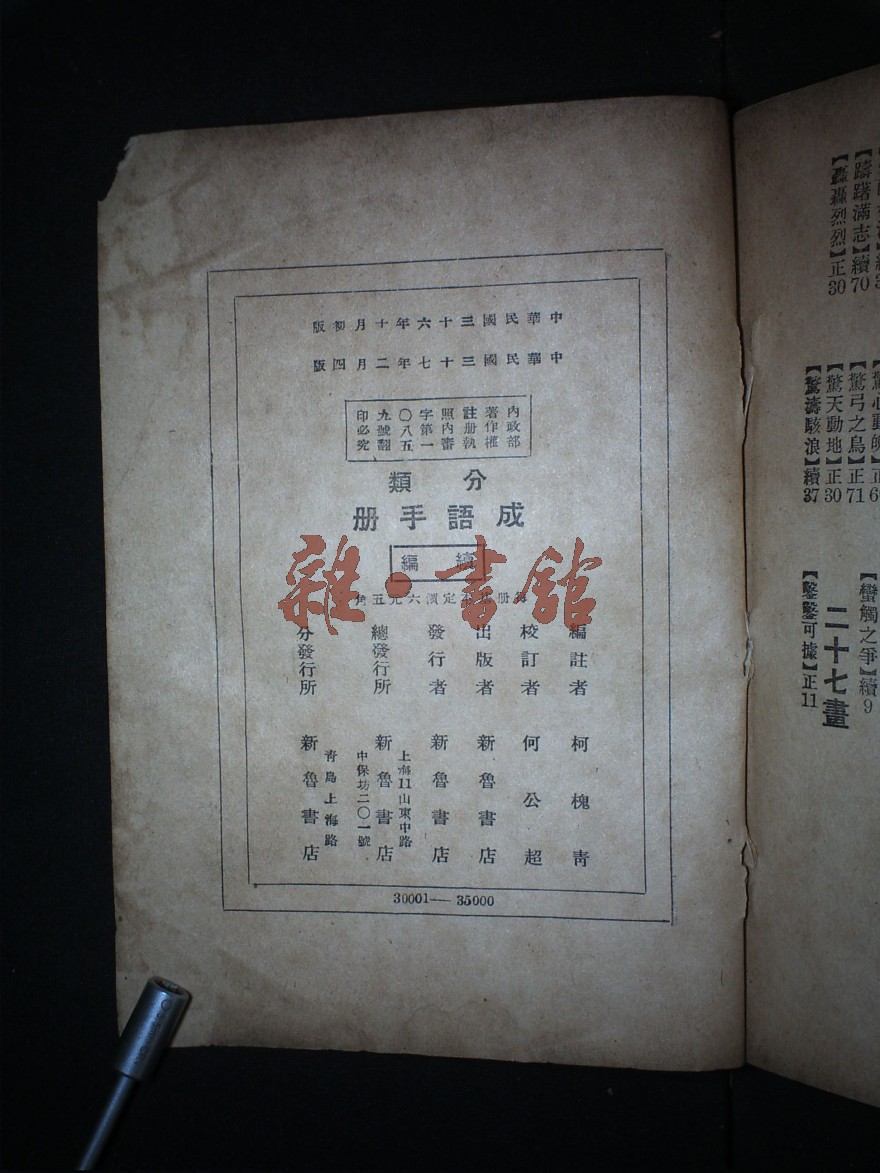 中華民國三十六年十月初版
中華民國三十七年二月四版
內政部
著作權
註册執
照內審
字第一
〇八五
九號翻
印必究
分類
成語手册
續編
每册基本定價六元五角
編註者 柯槐青
校訂者 何公超
出版者 新魯書店
發行者 新魯書店
總發行所 新魯書店
上海11山東中路
中保坊二〇一號
分發行所 新魯書店
青島上海路
30001—35000
雜·書館
【躊躇滿志】續70
【轟轟烈烈】正30
【驚弓之鳥】正71
【驚天動地】正30
【驚濤駭浪】續37
【蠻觸之爭】續9
二十七畫
【鑿鑿可據】正11